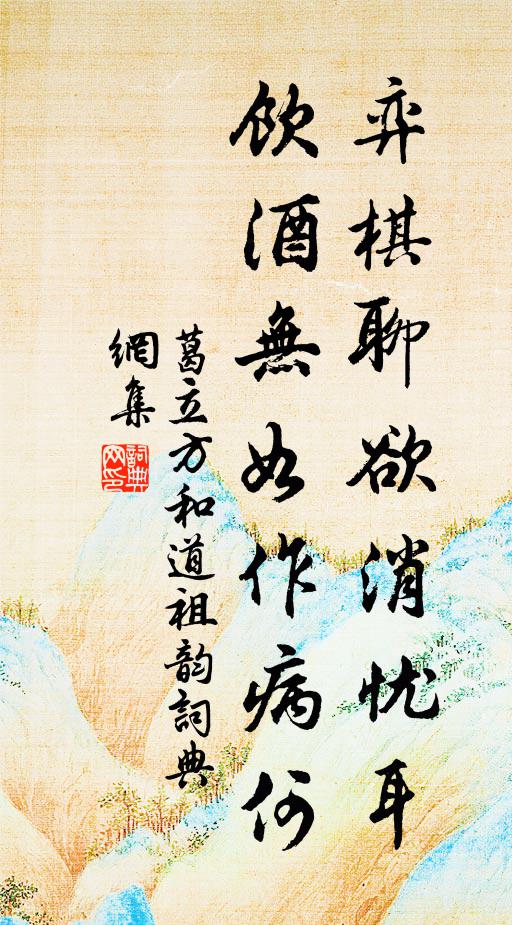 弈棋聊欲消忧耳
飲酒無如作病何
葛立方和道祖韵詞典
網集
詞典网印